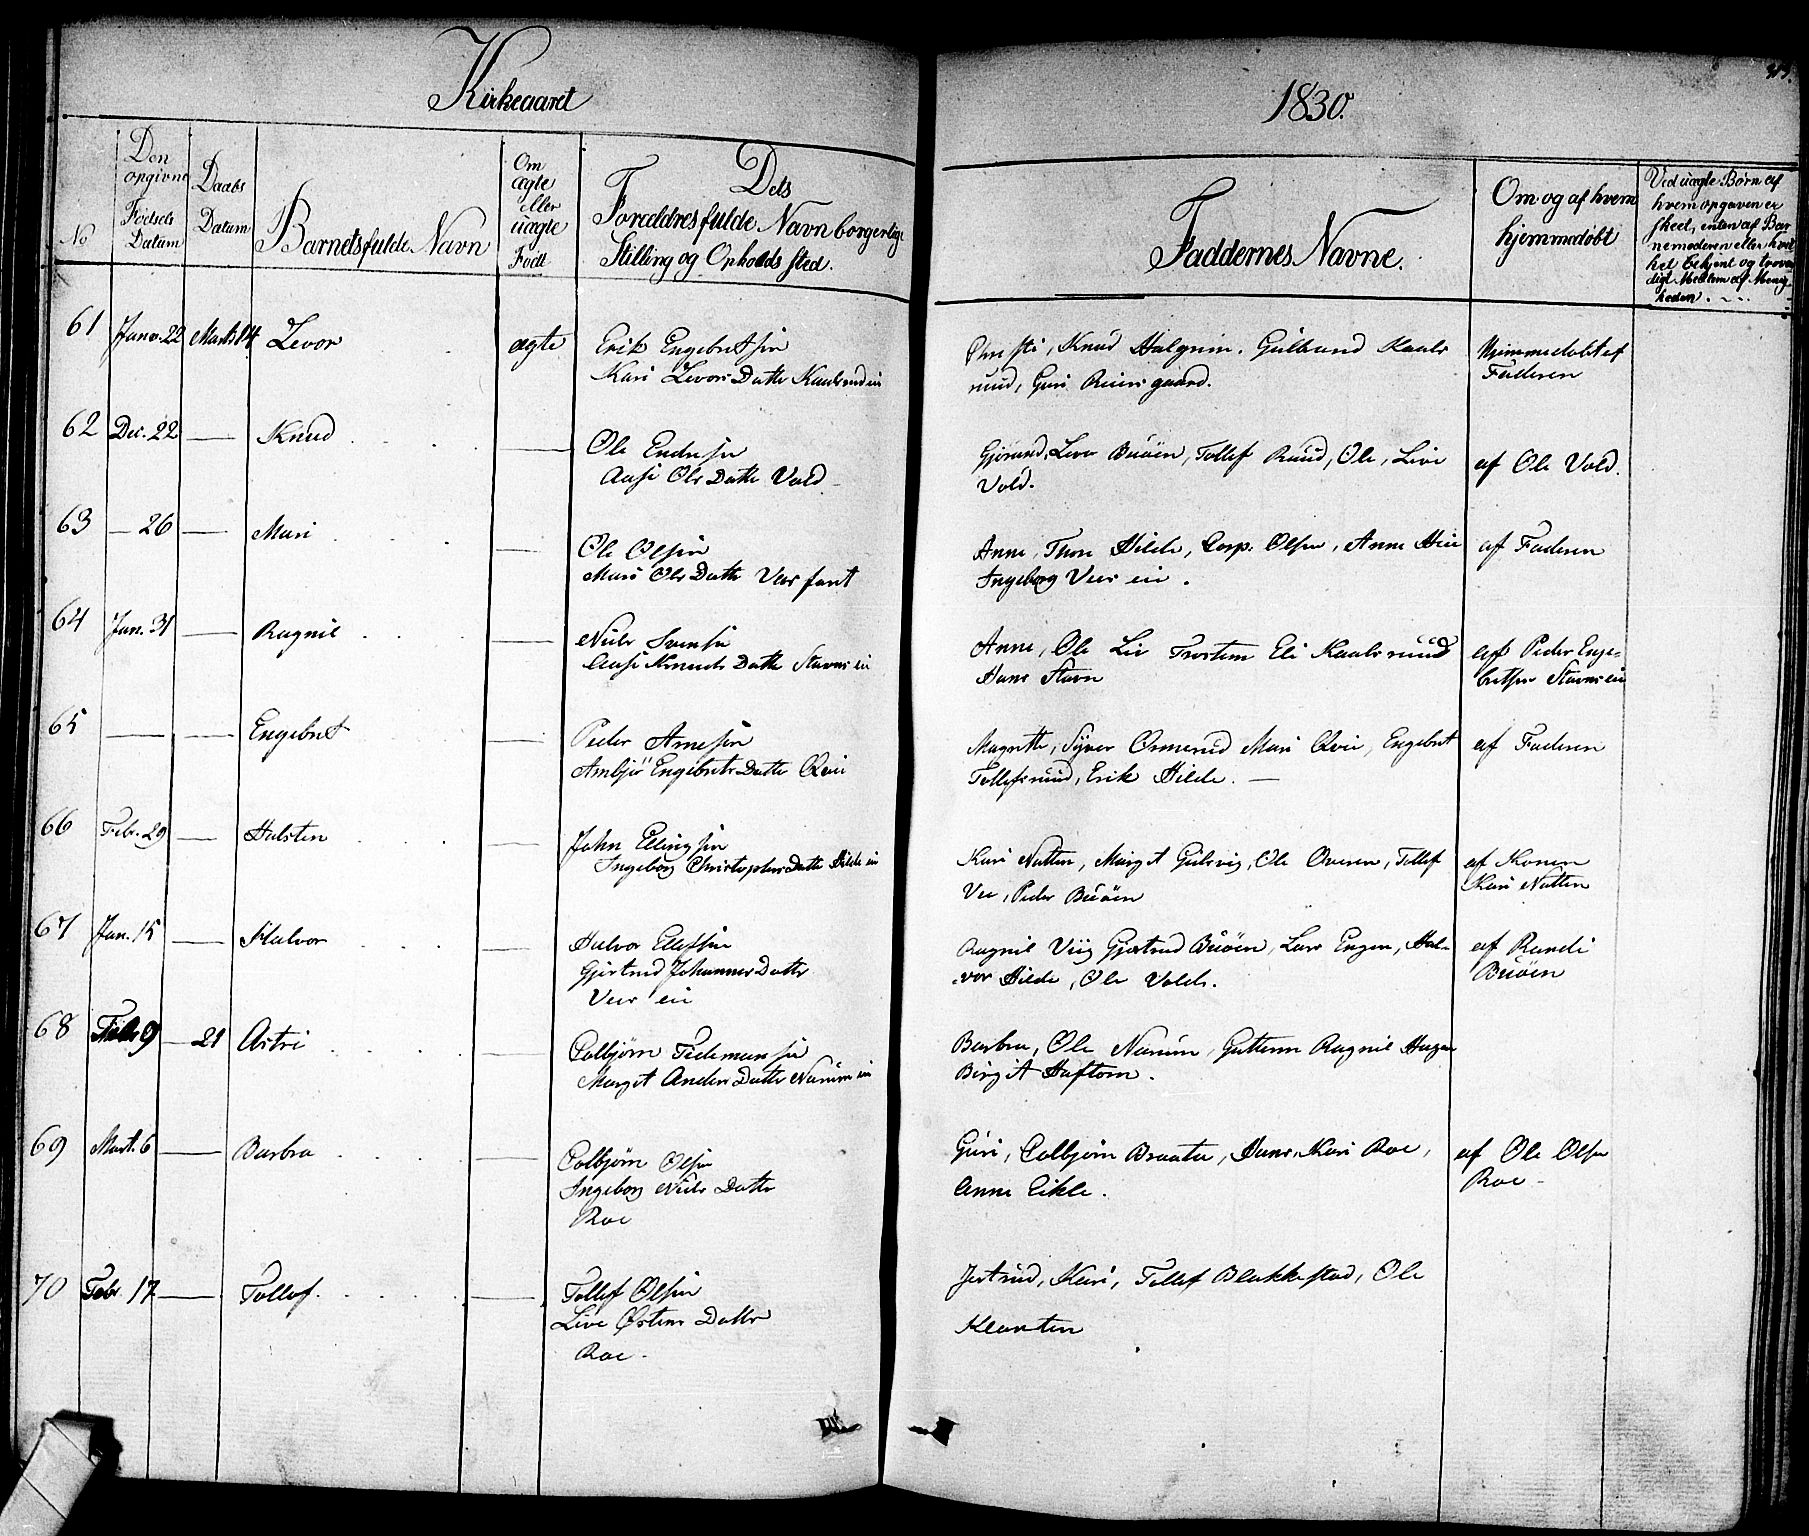 Kirkeaaret
1830.
No
Den opgivne Födsels Datum
Daabs Datum
Barnets fulde Navn
Om ægte eller uægte Födt
Dets Forældres fulde Navn borgerlige Stilling og Opholds sted.
Faddernes Navne.
Om og af hvem hjemmedøbt
Ved uægte Børn af hvem opgaven er skeet, enten af Barnemoderen eller hvilket bekjent og troværdigt Medlem af Menigheden.
61 Janu. 22 Marts 14 Levor ægte
Erik Engebretsen
Kari Levors Datter Kaalsrud ei
Christi, Knud Halgrim. Gulbrand Kaals
rud, Guri Reinsgaard.
Hjemmedøbt af
Faderen
62 Dec. 22 — Knud —
Ole Endresen
Aase Ols Datter Vold
Gjörand, Lever Buöen, Tollef Ruud, Ole, Live
Vold.
af Ole Vold.
63 — 26 — Mari —
Ole Olsen
Mari Ols Datter
Anne, Thore Hilde, Corp. Olsen, Anne
Ingeborg ei.
af Faderen
64 Jan. 31 — Ragnil —
Niels Svensen
Aase Knuds Datter Stavns ei
Anne, Ole Liv Trostem Eli Kaalsrud
Hans Stavn
af Peder Enge-
bretsen Stavns ei
65 — — Engebret —
Peder Arnesen
Ambjør Engebrets Datter Qvie
Magrethe, Syver Ormerud Mari Qvie, Engebret
Tollefsrud, Erik Hilde. —
af Faderen
66 Febr. 29 — Halsten —
John Ellingsen
Ingeborg Christophers Datter Hilde ei
Kari Natten, Margit Gulsvig, Ole Overen, Tollef
Vee, Peder Buöen
af Konen
Kari Natten
67 Jan. 15 — Halvor —
Halvor Ellefsen
Gjertrud Johannes Datter
ei
Ragnil Viig Gjertrud Buöen, Lars Engen, Hal-
vor Hilde, Ole Volds.
af Randi
Buöen
68 Febr 9 — 21 Astri —
Colbjørn Tidemansen
Margit Anders Datter Narum ei
Barbra, Ole Narum, Guttorm Ragnil Hagen
Birgit Haftorn.
69 Mart. 6 — Barbra —
Colbjørn Olsen
Ingeborg Niels Datter
Roe
Guri, Colbjørn Braata, Hans, Kari Roe,
Anne Eikle.
af Ole Olsen
Roe —
70 Febr. 17 — Tollef —
Tollef Olsen
Live Østens Datter
Roe —
Jertrud, Kari, Tollef Blakkestad, Ole
Klarten